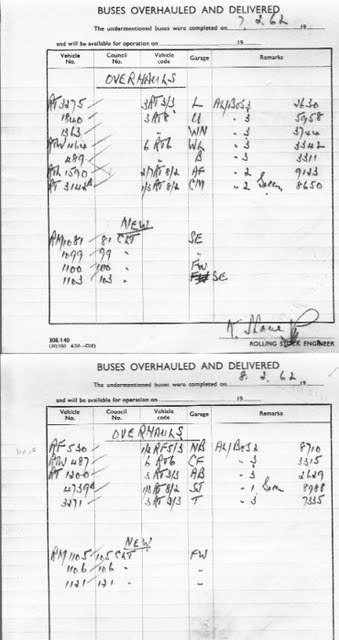 BUSES OVERHAULED AND DELIVERED
The undermentioned buses were completed on 7.2.62 19
and will be available for operation on 19
Vehicle No. Council No. Vehicle code Garage Remarks
OVERHAULS
RT 3275 3RT3/3 L AL/BOS3 2630
1840 3RT8 U - 3 5958
1363 " WN - 3 3744
RTW 464 6 RT6 WL - 3 3342
489 " B - 3 3311
RTL 1590 2/7RT8/2 AF - 2 9123
RT 3142 1/3RT8/2 CM - 2 8650
NEW
RM 1081 81 CLT SE
1099 99 " "
1100 100 " FW
1103 103 " SE
308/140
ROLLING STOCK ENGINEER
BUSES OVERHAULED AND DELIVERED
The undermentioned buses were completed on 8.2.62 19
and will be available for operation on 19
Vehicle No. Council No. Vehicle code Garage Remarks
OVERHAULS
RF 530 1/2 RF5/3 NB AL/BOS2 8710
RTW 487 6 RT6 CF - 3 3315
RT 1200 3RT3/3 AB - 3 2629
4739 1/3RT8/2 ST - 1 8988
3271 3RT3/3 T - 3 7335
NEW
RM 1105 105 CLT FW
1106 106 " "
1121 121 " "